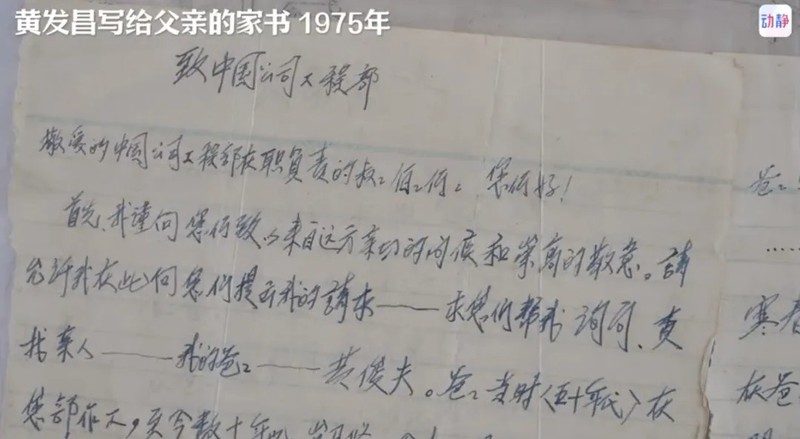 黄发昌写给父亲的家书 1975年
动静
致中国公司工程部
敬爱的中国公司工程部在职负责的叔叔伯伯们：您们好！
首先，我谨向您们致以来自远方亲切的问候和崇高的敬意。請
允许我在此向您们提出我的請求——求您们帮我询问、
找亲人——我的爸爸——黄俊夫。爸爸当时〈五十年代〉在
您部作工，至今数十年
爸
……
寒
在爸